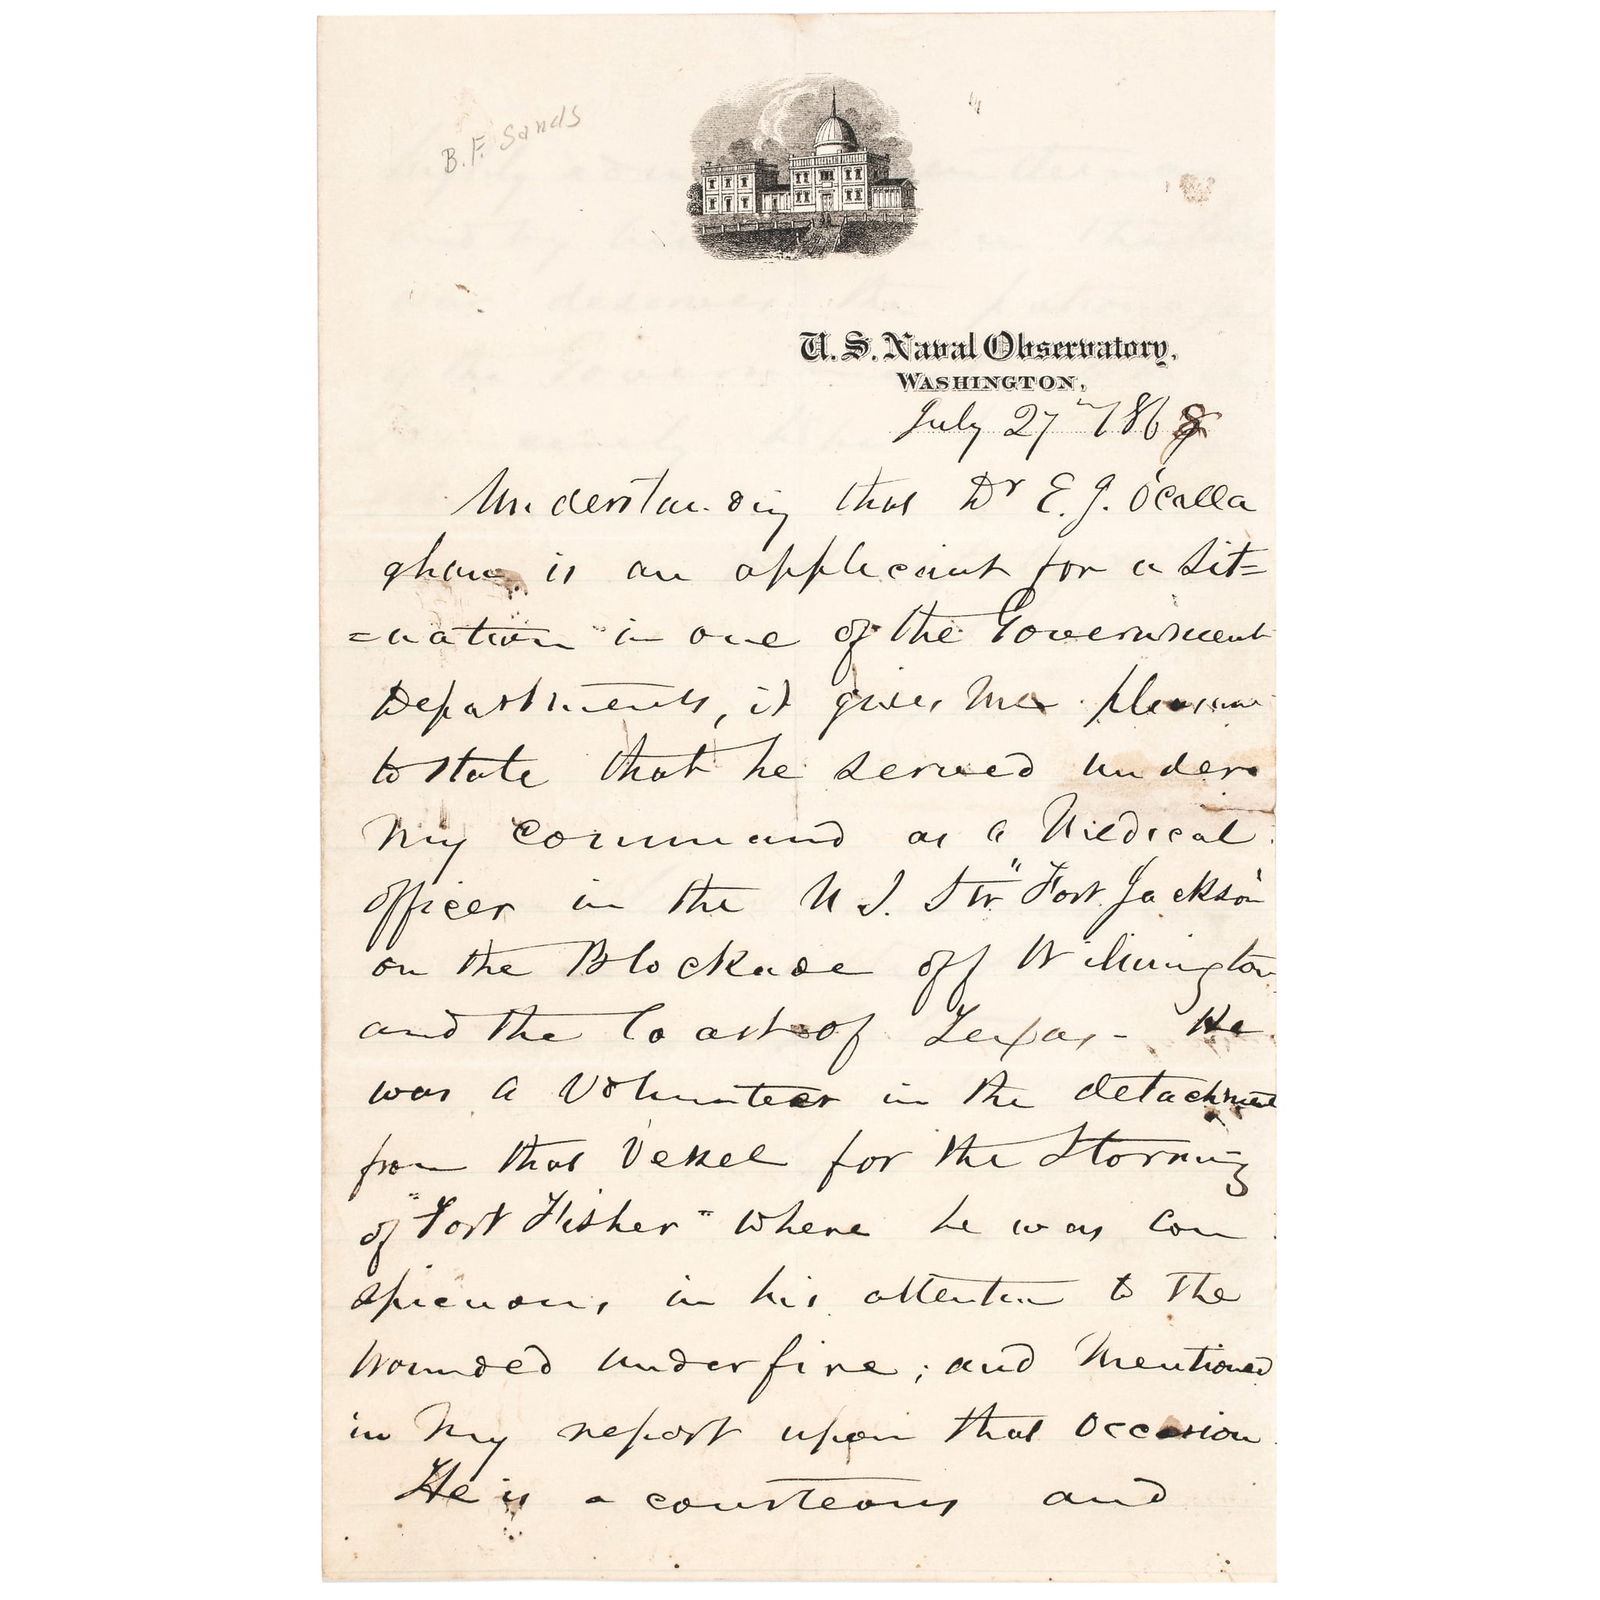 B.F. Sands
U.S. Naval Observatory,
WASHINGTON,
July 27th 1868
Understanding that Dr E. J. O'Calla
ghan is an applicant for a sit=
=uation in one of the Government
Departments, it gives me pleasure
to state that he served under
my command as a Medical
officer in the U.S. Str "Fort Jackson"
on the Blockade off Wilmington
and the Coast of Texas - He
was a Volunteer in the detachment
from that Vessel for the Storming
of "Fort Fisher" where he was con
spicuous, in his attention to the
wounded under fire; and mentioned
in my report upon that occasion
He is a courteous and